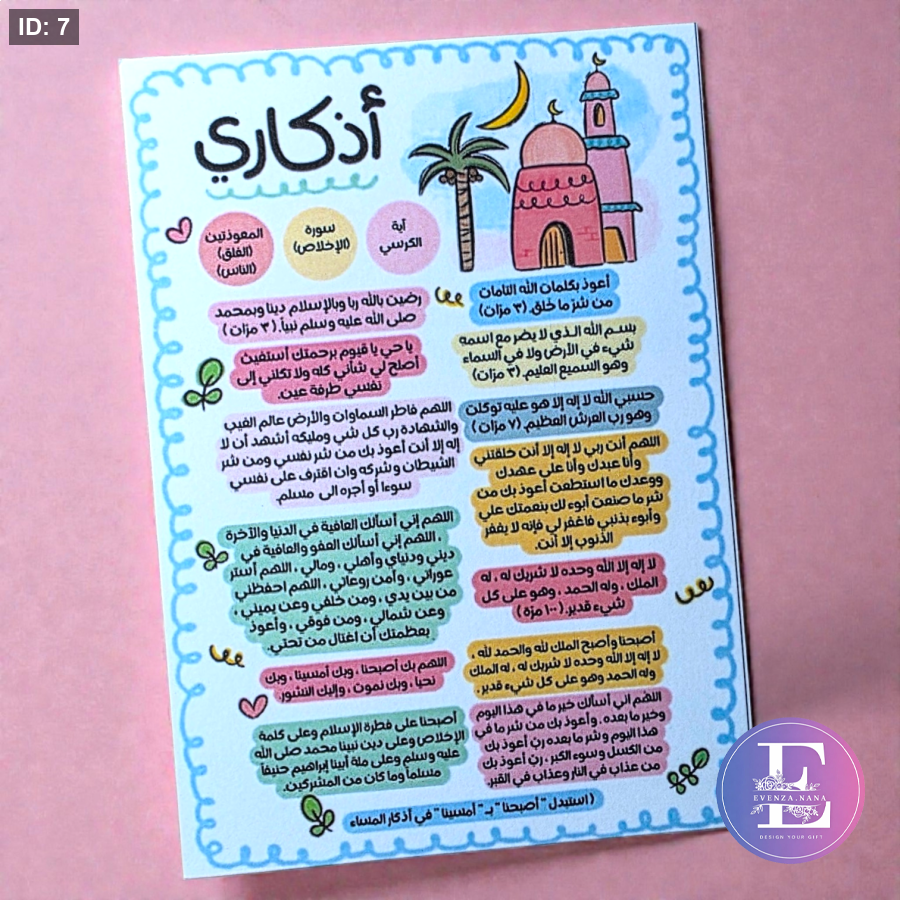 ID: 7
أذكاري
آية
الكرسي
سورة
(الإخلاص)
المعوذتين
(الفلق)
(الناس)
أعوذ بكلمات الله التامات
من شر ما خلق. (٣ مرات)
بسم الله الذي لا يضر مع اسمه
شيء في الأرض ولا في السماء
وهو السميع العليم. (٣ مرات)
حسبي الله لا إله إلا هو عليه توكلت
وهو رب العرش العظيم. (٧ مرات)
اللهم أنت ربي لا إله إلا أنت خلقتني
وأنا عبدك وأنا على عهدك
ووعدك ما استطعت أعوذ بك من
شر ما صنعت أبوء لك بنعمتك علي
وأبوء بذنبي فاغفر لي فإنه لا يغفر
الذنوب إلا أنت.
لا إله إلا الله وحده لا شريك له ، له
الملك ، وله الحمد ، وهو على كل
شيء قدير. (١٠٠ مرة)
أصبحنا وأصبح الملك لله والحمد لله ،
لا إله إلا الله وحده لا شريك له ، له الملك
وله الحمد وهو على كل شيء قدير.
اللهم اني أسألك خير ما في هذا اليوم
وخير ما بعده ، وأعوذ بك من شر ما في
هذا اليوم وشر ما بعده ربّ أعوذ بك
من الكسل وسوء الكبر ، ربّ أعوذ بك
من عذاب في النار وعذاب في القبر.
رضيت بالله ربا وبالإسلام دينا وبمحمد
صلى الله عليه وسلم نبياً. (٣ مرات)
يا حي يا قيوم برحمتك أستغيث
أصلح لي شأني كله ولا تكلني إلى
نفسي طرفة عين.
اللهم فاطر السماوات والأرض عالم الغيب
والشهادة رب كل شي ومليكه أشهد أن لا
إله إلا أنت أعوذ بك من شر نفسي ومن شر
الشيطان وشركه وان اقترف على نفسي
سوءا أو أجره الى مسلم.
اللهم إني أسألك العافية في الدنيا والآخرة
، اللهم إني أسألك العفو والعافية في
ديني ودنياي وأهلي ، ومالي ، اللهم أستر
عوراتي ، وآمن روعاتي ، اللهم احفظني
من بين يدي ، ومن خلفي وعن يميني ،
وعن شمالي ، ومن فوقي ، وأعوذ
بعظمتك أن اغتال من تحتي.
اللهم بك أصبحنا ، وبك أمسينا ، وبك
نحيا ، وبك نموت ، وإليك النشور.
أصبحنا على فطرة الإسلام وعلى كلمة
الإخلاص وعلى دين نبينا محمد صلى الله
عليه وسلم وعلى ملة أبينا إبراهيم حنيفاً
مسلماً وما كان من المشركين.
( استبدل " أصبحنا " بـ " أمسينا " في أذكار المساء
E
EVENZA.NANA
DESIGN YOUR GIFT